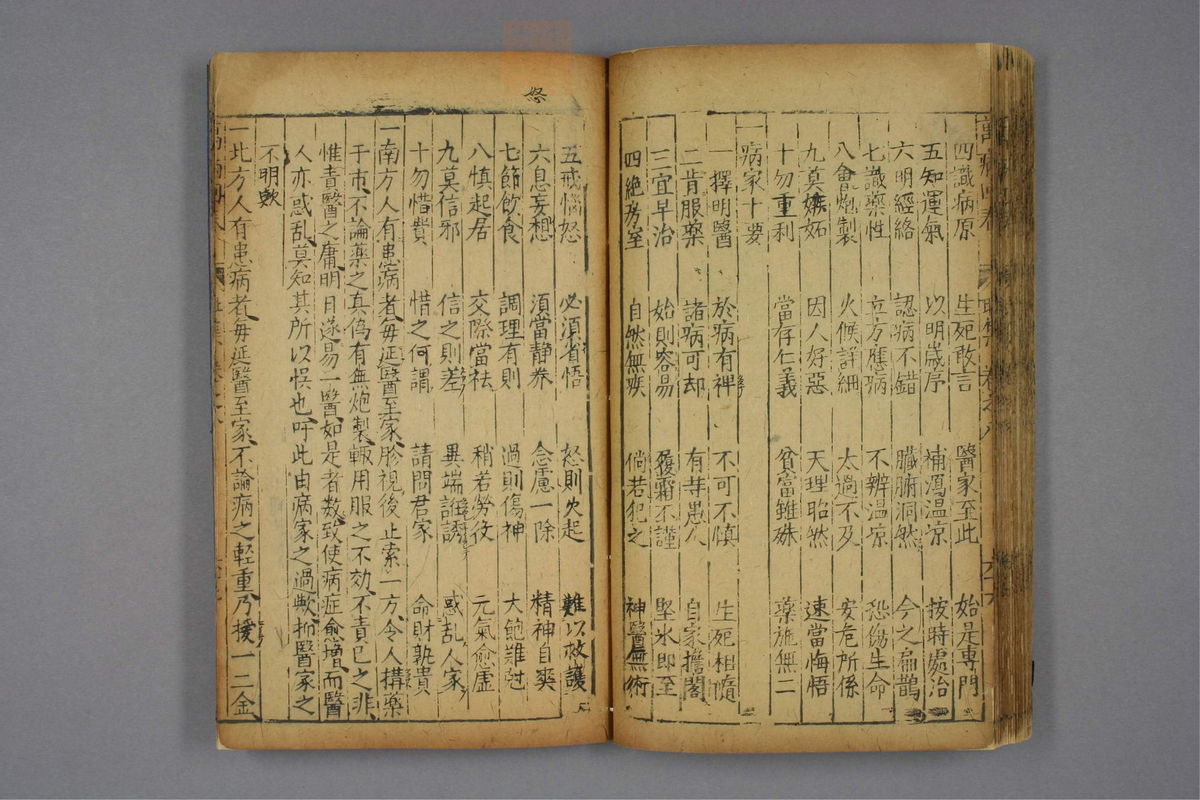 四識病原 生死敢言 醫家至此 始是專門
五知運氣 以明歲序 補瀉温凉 按時處治
六明經絡 認病不錯 臟腑洞然 今之扁鵲
七識藥性 立方應病 不辨温凉 恐傷生命
八會炮製 火候詳細 太過不及 安危所係
九莫嫉妬 因人好惡 天理昭然 速當悔悟
十勿重利 當存仁義 貧富雖殊 藥施無二
一病家十要
一擇明醫 於病有裨 不可不慎 生死相隨
二肯服藥 諸病可却 有等愚人 自家擔閣
三宜早治 始則容易 履霜不謹 堅氷即至
四絶房室 自然無疾 倘若犯之 神醫無術
怒
五戒惱怒 必須省悟 怒則火起 難以救護
六息妄想 須當静養 念慮一除 精神自爽
七節飲食 調理有則 過則傷神 大飽難尅
八慎起居 交際當祛 稍若勞役 元氣愈虚
九莫信邪 信之則差 異端誑誘 惑乱人家
十勿惜費 惜之何謂 請問君家 命財孰貴
一南方人有患病者每延醫至家胗視後止索一方令人構藥
于市不論藥之真偽有無炮製輙用服之不効不責已之非
惟責醫之庸明日遂易一醫如是者数致使病症愈増而醫
人亦惑乱莫知其所以悞也吁此由病家之過歟抑醫家之
不明歟
一北方人有患病者毎延醫至家不論病之輕重乃援一二金